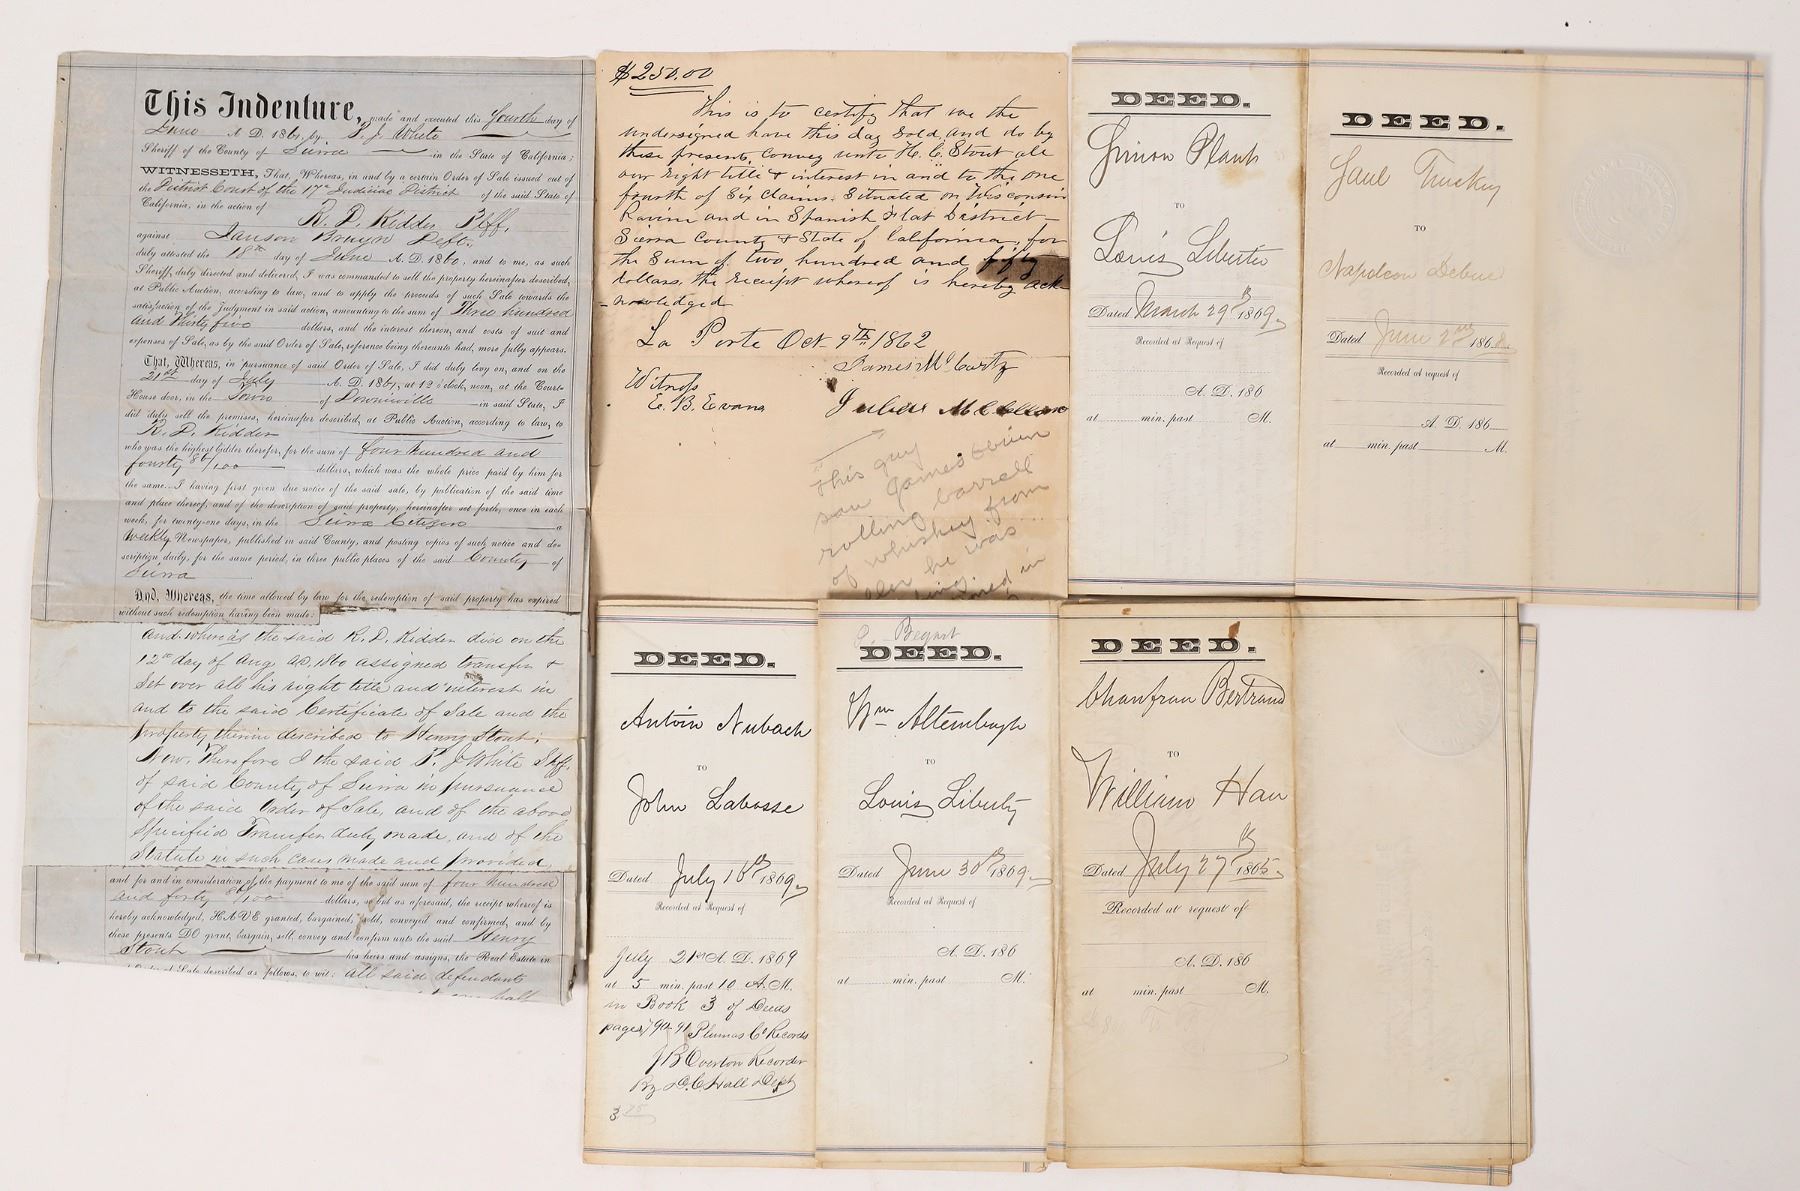 This Indenture, made and executed this Fourth day of
June A. D. 1861, by P. J. White
Sheriff of the County of Sierra in the State of California;
WITNESSETH, That, Whereas, in and by a certain Order of Sale issued out of
the District Court of the 17th Judicial District of the said State of
California, in the action of
R. D. Kidder Plff.
against Janson Bruyn Deft.
duly attested the 18th day of June A. D. 1860, and to me, as such
Sheriff, duly directed and delivered, I was commanded to sell the property hereinafter described,
at Public Auction, according to law, and to apply the proceeds of such Sale towards the
satisfaction of the Judgment in said action, amounting to the sum of Three hundred
and thirty five dollars, and the interest thereon, and costs of suit and
expenses of Sale, as by the said Order of Sale, reference being thereunto had, more fully appears.
That, Whereas, in pursuance of said Order of Sale, I did duly levy on, and on the
21st day of July A. D. 1860, at 12 o'clock, noon, at the Court-
House door, in the Town of Downieville in said State, I
did duly sell the premises, hereinafter described, at Public Auction, according to law, to
R. D. Kidder
who was the highest bidder therefor, for the sum of four hundred and
fourty 86/100 dollars, which was the whole price paid by him for
the same. I having first given due notice of the said sale, by publication of the said time
and place thereof, and of the description of said property, hereinafter set forth, once in each
week, for twenty-one days, in the Sierra Citizen a
weekly Newspaper, published in said County, and posting copies of such notice and de-
scription daily, for the same period, in three public places of the said County of
Sierra
And, Whereas, the time allowed by law for the redemption of said property has expired
without such redemption having been made:
And whereas the said R. D. Kidder did on the
12th day of Aug AD, 1860 assigned transfer &
Set over all his right title and interest in
and to the said Certificate of Sale and the
property therein described to Henry Stout;
Now, Therefore I the said P. J White Shff.
of said County of Sierra in pursuance
of the said Order of Sale, and of the above
Specified Transfer duly made, and of the
Statute in such cases made and provided
and for and in consideration of the payment to me of the said sum of four hundred
and forty 86/100 dollars, so but as aforesaid, the receipt whereof is
hereby acknowledged, HAVE granted, bargained, sold, conveyed and confirmed, and by
these presents DO grant, bargain, sell, convey and confirm unto the said Henry
Stout his heirs and assigns, the Real Estate in
Order of Sale described as follows, to wit: all said defendants
$250.00
This is to certify that we the
undersigned have this day Sold, and do by
these present, Convey unto H. C. Stout all
our right title & interest in and to the one
fourth of Six Claims, Situated on Wisconsin
Ravine and in Spanish Flat District
Sierra County & State of California, for
the Sum of two hundred and fifty
dollars, the receipt whereof is hereby ack-
nowledged
La Porte Oct 9th 1862
James McCurtz
Witness
E. B. Evans
This guy
saw James
rolling barrell
of whiskey from
he was
in
DEED.
Simon Plank
TO
Louis Libertie
Dated March 29th 1869
Recorded at Request of
A. D. 186
at min. past M.
DEED.
TO
Napoleon
Dated June 2nd 1868
Recorded at request of
A. D. 186
at min. past M.
DEED.
Antoin Nubach
TO
John Labosse
Dated July 16th 1869
Recorded at Request of
July 21st A. D. 1869
at 5 min. past 10 A. M.
in Book 3 of Deeds
pages 790-91 Plumas Co Records
J B Overton Recorder
By D. C Hall Dept
3 75
P. Begart
DEED.
Wm Altembagh
TO
Louis Liberty
Dated June 30th 1869
Recorded at Request of
A. D. 186
at min. past M.
DEED.
Chanfran Bertrand
TO
William Hau
Dated July 27th 1865
Recorded at request of
A. D. 186
at min. past M.